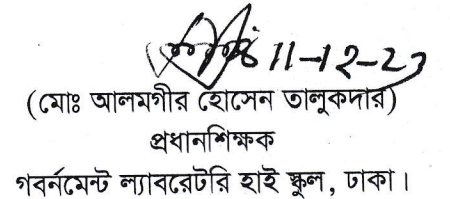 11-12-23
(মোঃ আলমগীর হোসেন তালুকদার)
প্রধানশিক্ষক
গবর্নমেন্ট ল্যাবরেটরি হাই স্কুল, ঢাকা।